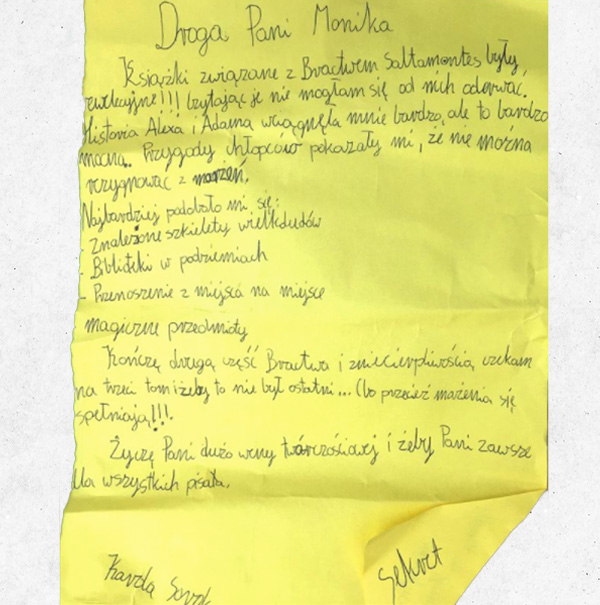 Droga Pani Monika
Książki związane z Bractwem Saltamontes były
rewelacyjne!!! Czytając je nie mogłam się od nich oderwać.
Historia Alexa i Adama wciągnęła mnie bardzo, ale to bardzo
mocno. Przygody chłopców pokazały mi, że nie można
rezygnować z marzeń.
Najbardziej podobało mi się:
- Znalezione szkielety wielkoludów
- Biblioteki w podziemiach
- Przenoszenie z miejsca na miejsce
magiczne przedmioty
Kończę drugą część Bractwa i zniecierpliwością czekam
na trzeci tom i żeby to nie był ostatni... (bo przecież marzenia się
spełniają!!!.
Życzę Pani dużo weny twórczościowej i żeby Pani zawsze
dla wszystkich pisała.
Sekret